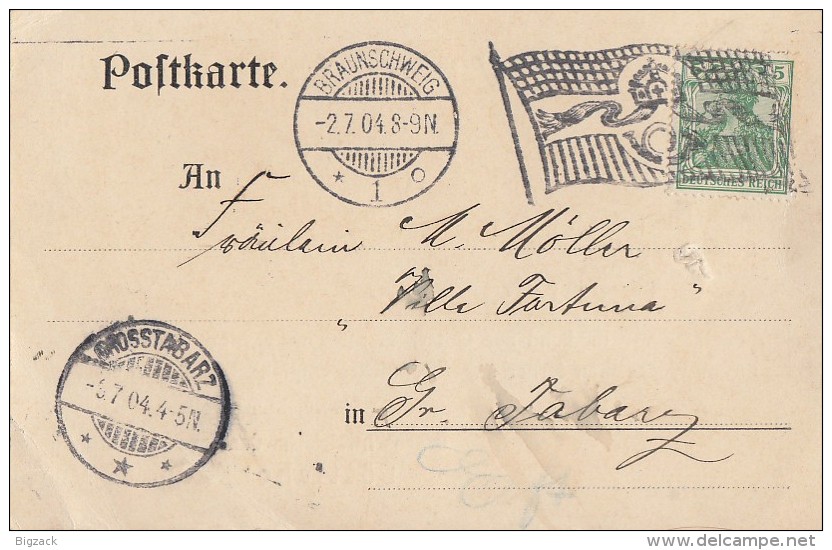 Postkarte.
BRAUNSCHWEIG
-2.7.04.8-9N.
* 1 o
5
DEUTSCHES REICH
An
Fräulein M. Möller
„Villa Fortuna"
GROSSTABARZ
-3.7 04.4-5N.
in Gr. Tabarz
Bigzack
delcampe.net